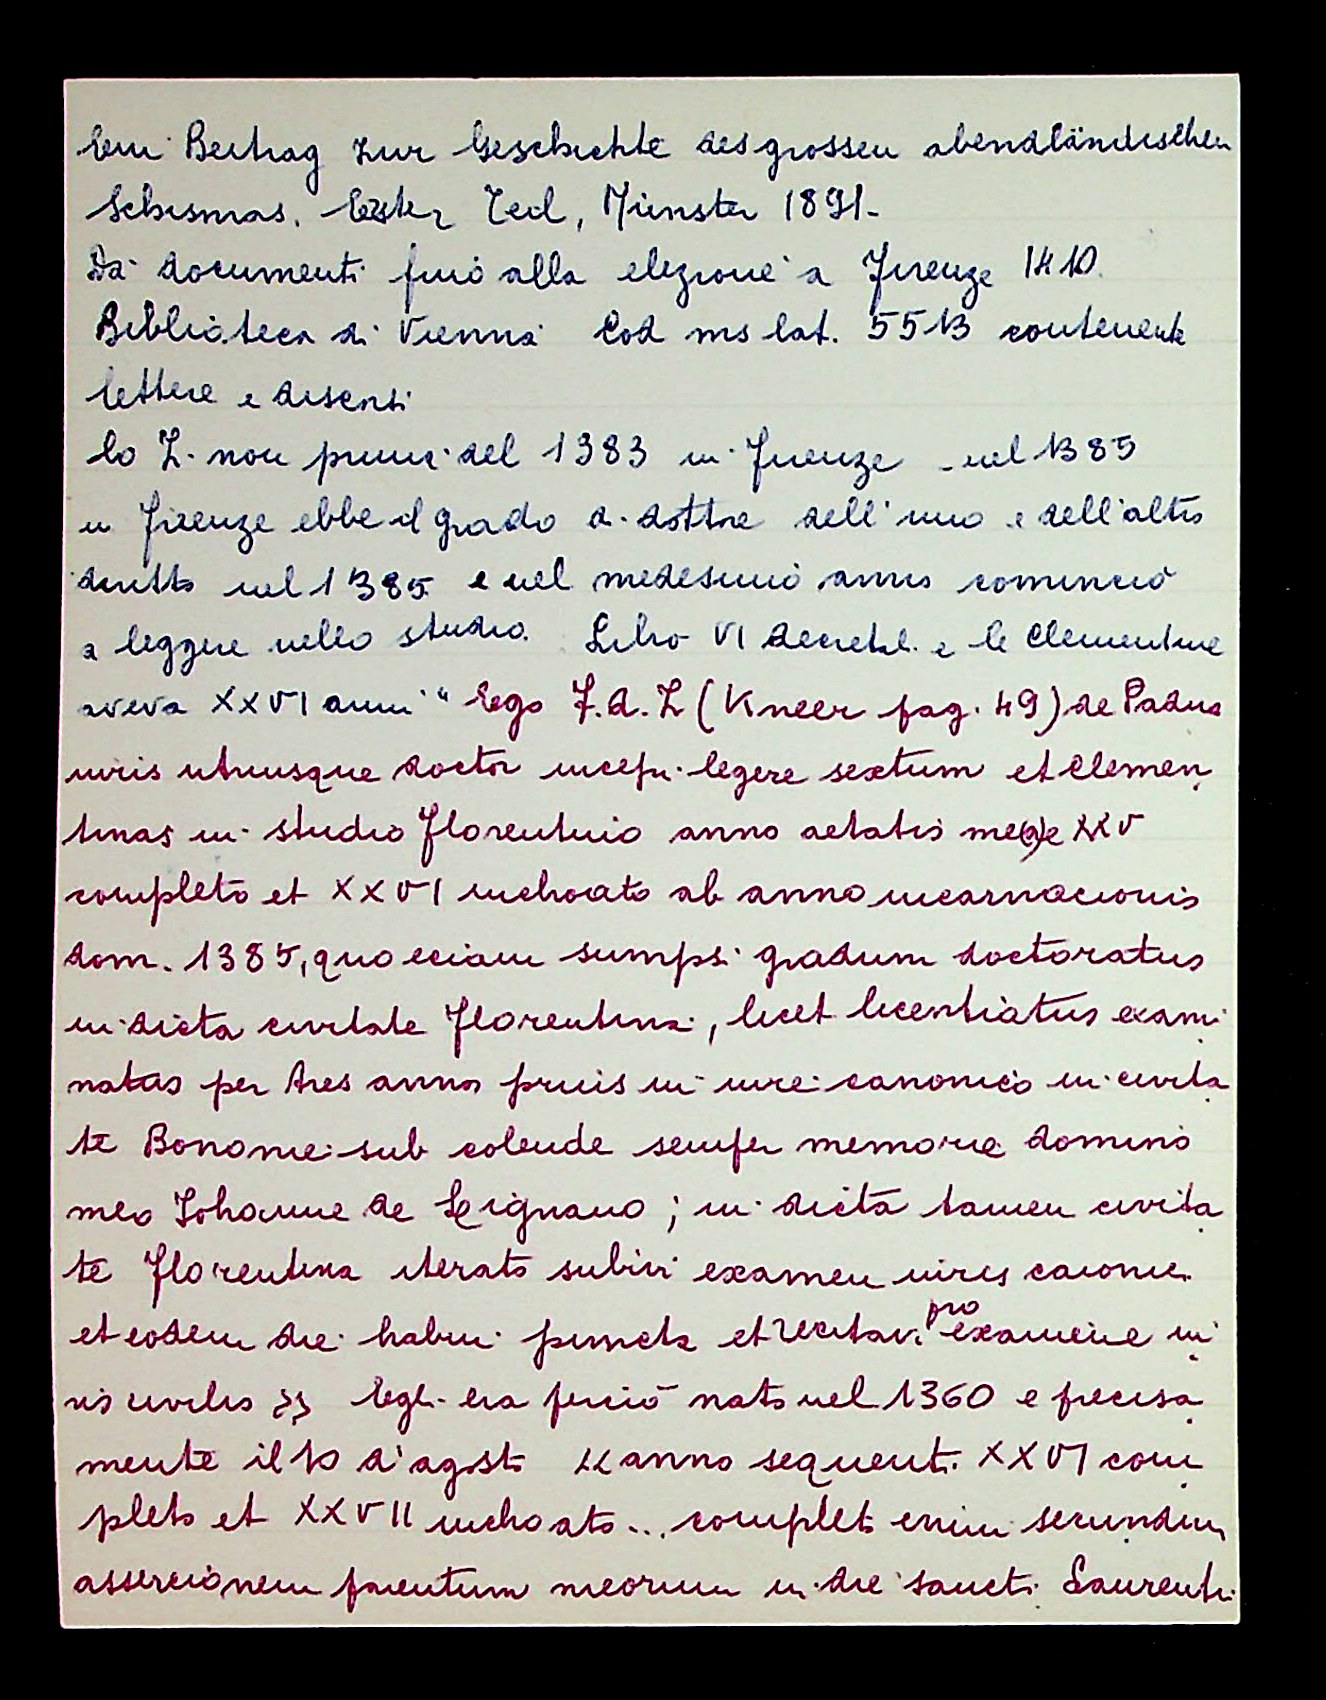 Ein Beitrag zur Geschichte des grossen abendländischen
Schismas. Erster Teil, Münster 1891-
Dà documenti fino alla elezione a Firenze 1410.
Biblioteca di Vienna Cod ms lat. 5513 contenente
lettere e discorsi
lo Z. non prima del 1383 in Firenze - nel 1385
in Firenze ebbe il grado di dottore dell'uno e dell'altro
diritto nel 1385 e nel medesimo anno cominciò
a leggere nello studio. Libro VI Decretal. e le Clementine
aveva XXVI anni " Ego F.d.Z (Kneer pag. 49) de Padua
iuris utriusque doctor incepi legere sextum et Clemen
tinas in studio Florentino anno aetatis me(a)e XXV
completo et XXVI inchoato ab anno incarnacionis
dom. 1385, quo eciam sumpsi gradum doctoratus
in dicta civitate Florentina, licet licentiatus exami
natus per tres annos prius in iure canonico in civita
te Bononie sub colende semper memorie domino
meo Johanne de Legnano; in dicta tamen civita
te Florentina iterato subivi examen iuris canonic.
et eodem die habui puncta et recitavi pro examine iu
ris civilis » Egli era perciò nato nel 1360 e precisa
mente il 10 d'agosto « anno sequenti XXVI com
pleto et XXVII inchoato... complet enim secundum
assercionem parentum meorum in die sancti Laurenti